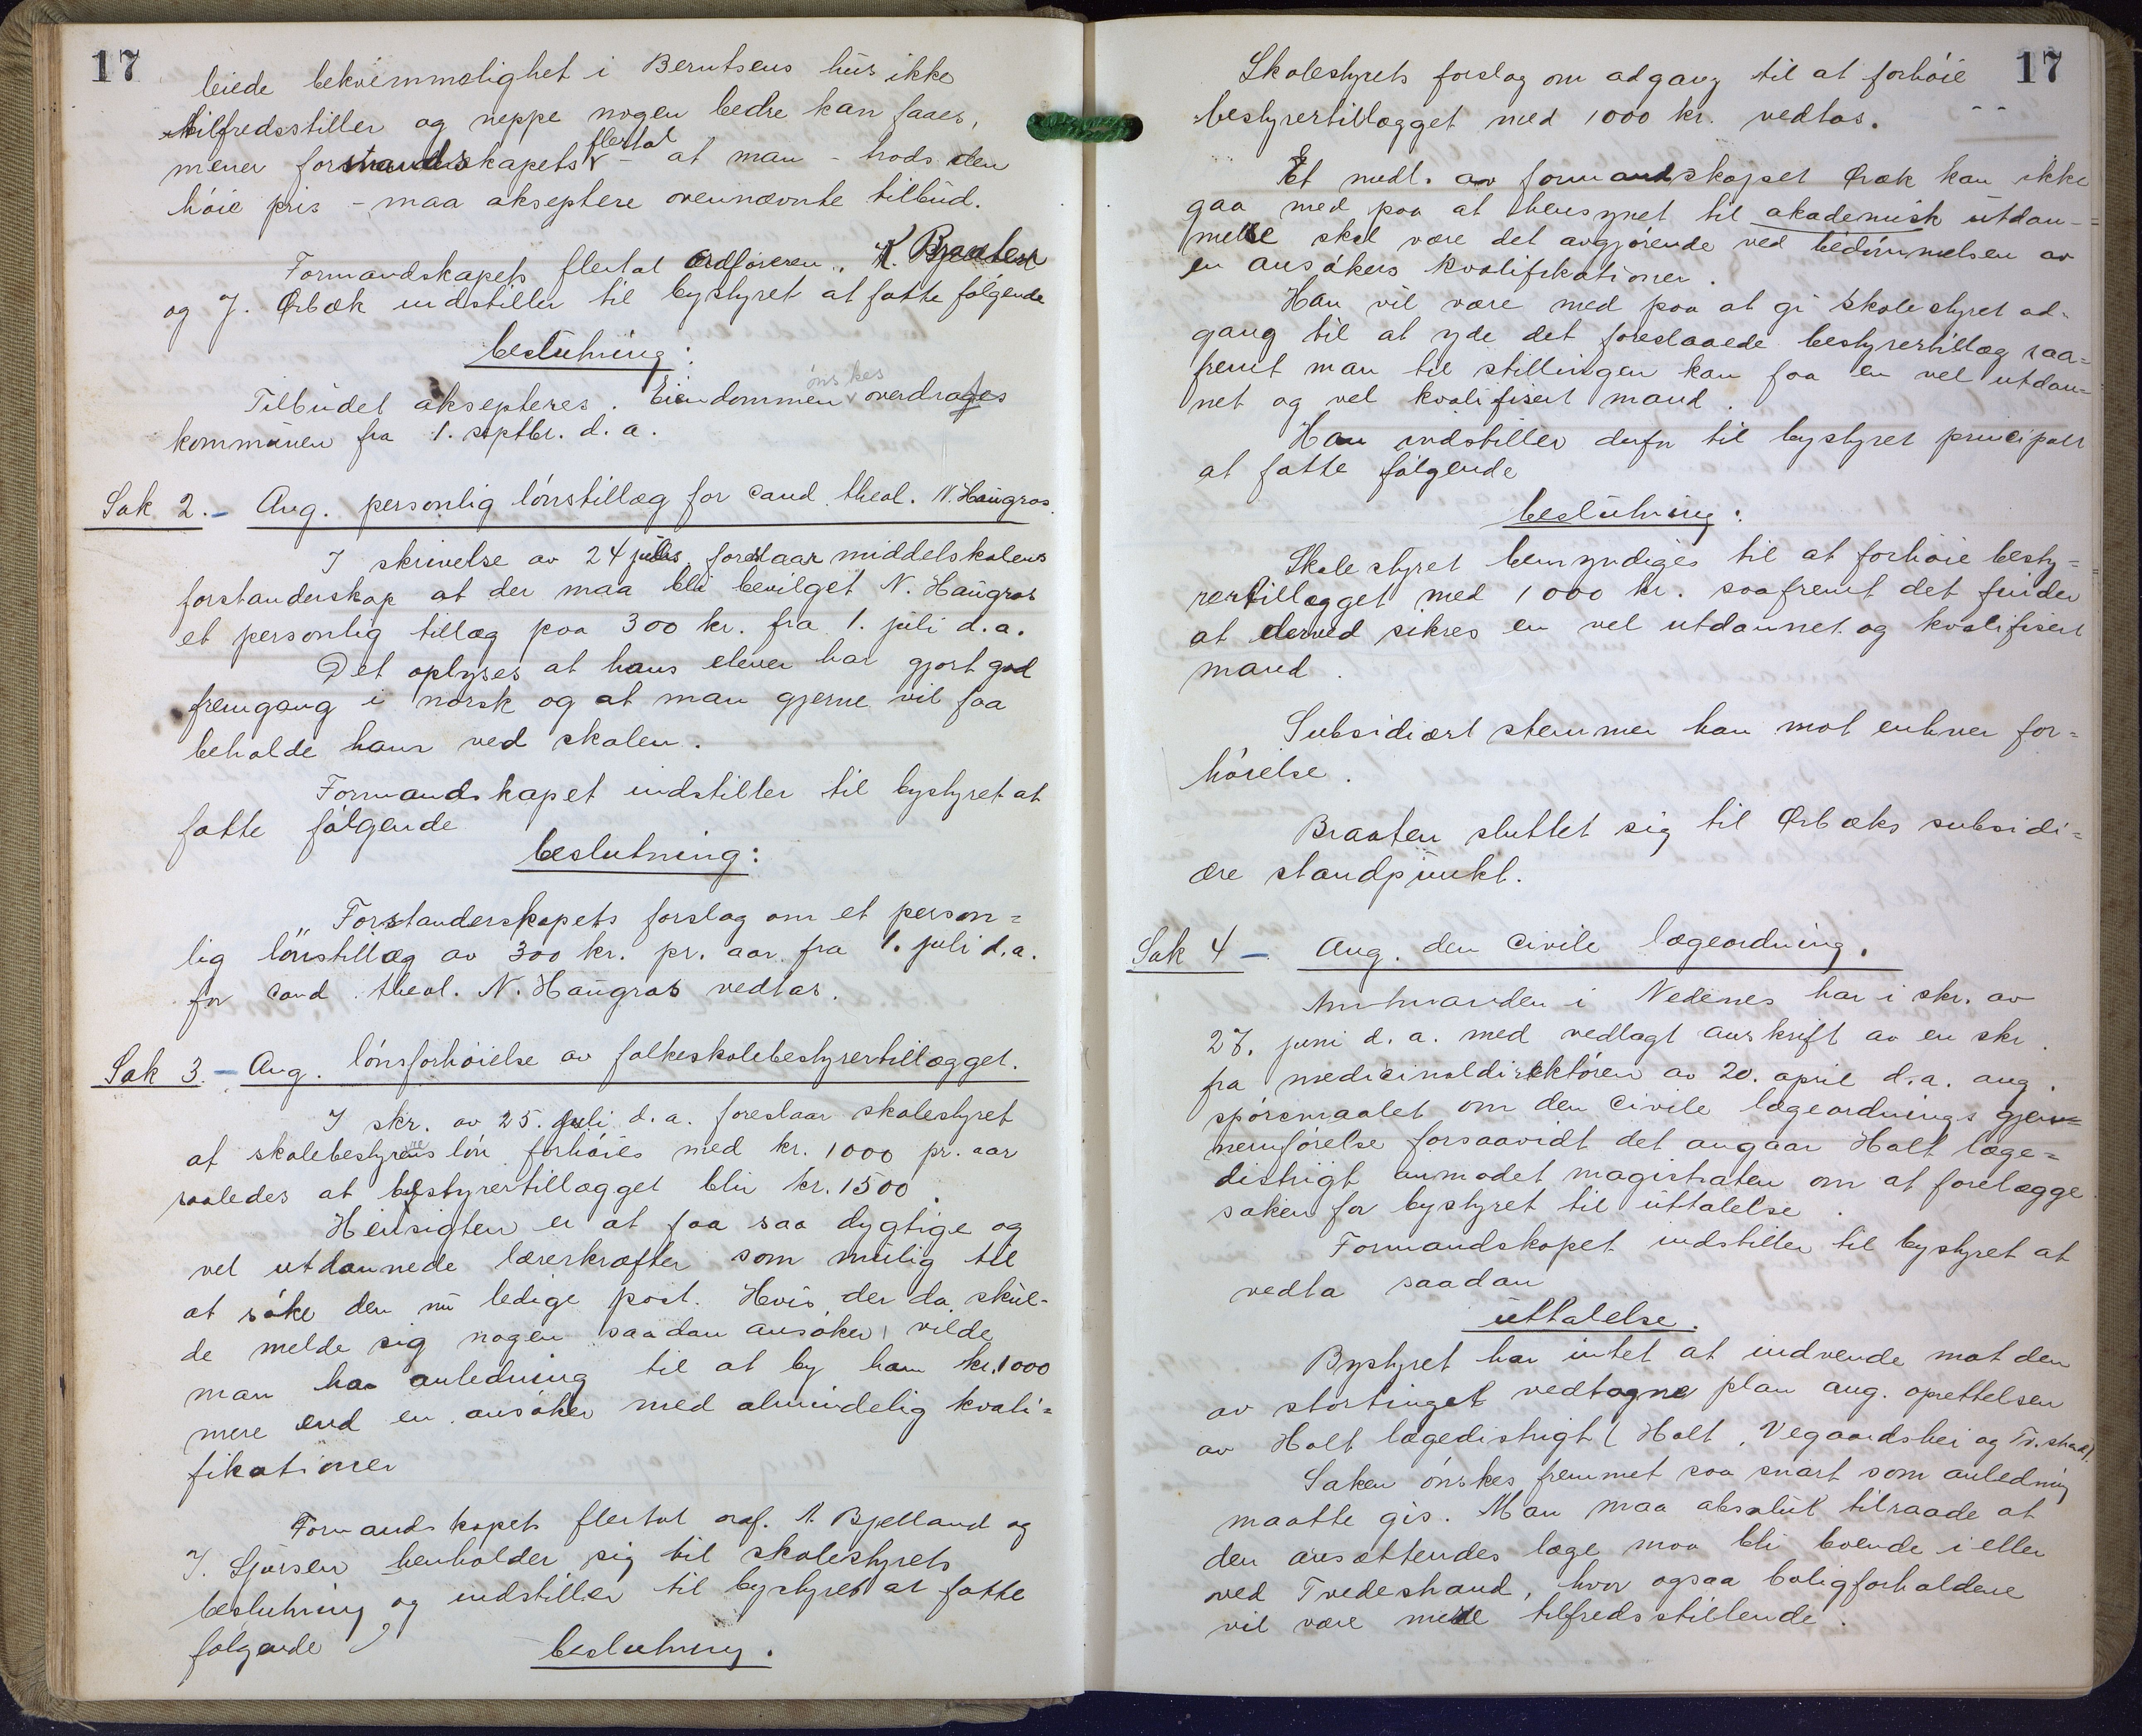 17
leiede bekvemmelighet i Berntsens hus ikke
tilfredsstiller og neppe nogen bedre kan faaes,
mener formandskapets flertal - at man - trods den
høie pris - maa akseptere ovennævnte tilbud.
Formandskapets flertal ordføreren, K. Braaten
og J. Ørbæk indstiller til bystyret at fatte følgende
beslutning:
Tilbudet aksepteres. Eiendommen ønskes overdrages
kommunen fra 1. septbr. d. a.
Sak 2. - Ang. personlig lønstillæg for cand. theol. N. Haugros.
I skrivelse av 24 juli foreslaar middelskolens
forstanderskap at der maa bli bevilget N. Haugros
et personlig tillæg paa 300 kr. fra 1. juli d. a.
Det oplyses at hans elever har gjort god
fremgang i norsk og at man gjerne vil faa
beholde ham ved skolen.
Formandskapet indstiller til bystyret at
fatte følgende
beslutning:
Forstanderskapets forslag om et person=
lig lønstillæg av 300 kr. pr. aar fra 1. juli d. a.
for cand. theol. N. Haugros vedtas.
Sak 3. - Ang. lønsforhøielse av folkeskolebestyrertillægget.
I skr. av 25. juli d. a. foreslaar skolestyret
at skolebestyrerens løn forhøies med kr. 1000 pr. aar
saaledes at bestyrertillægget blir kr. 1500.
Hensigten er at faa saa dygtige og
vel utdannede lærerkræfter som mulig til
at søke den nu ledige post. Hvis der da skul-
de melde sig nogen saadan ansøker, vilde
man ha anledning til at by ham kr. 1000
mere end en ansøker med almindelig kvali=
fikationer
Formandskapets flertal orf. A. Bjelland og
J. Sjørsen henholder sig til skolestyrets
beslutning og indstiller til bystyret at fatte
følgende
beslutning.
17
Skolestyrets forslag om adgang til at forhøie
bestyrertillægget med 1000 kr. vedtas.
Et medl. av formandskapet Ørbæk kan ikke
gaa med paa at hensynet til akademisk utdan-
nelse skal være det avgjørende ved bedømmelsen av
en ansøkers kvalifikationer.
Han vil være med paa at gi skolestyret ad-
gang til at yde det foreslaaede bestyrertillæg saa=
fremt man til stillingen kan faa en vel utdan=
net og vel kvalifisert mand.
Han indstiller derfor til bystyret principalt
at fatte følgende
beslutning:
Skolestyret bemyndiges til at forhøie besty=
rertillægget med 1000 kr. saafremt det finder
at derved sikres en vel utdannet og kvalifisert
mand.
Subsidiært stemmer han mot enhver for=
høielse.
Braaten sluttet sig til Ørbæks subsidi=
ære standpunkt.
Sak 4 - Ang. den civile lægeordning.
Amtmanden i Nedenes har i skr. av
27. juni d. a. med vedlagt avskrift av en skr.
fra medicinaldirektøren av 20. april d. a. ang.
spørsmaalet om den civile lægeordnings gjen=
nemførelse forsaavidt det angaar Holt læge=
distrigt anmodet magistraten om at forelægge
saken for bystyret til uttalelse.
Formandskapet indstiller til bystyret at
vedta saadan
uttalelse.
Bystyret har intet at indvende mot den
av stortinget vedtagne plan ang. oprettelsen
av Holt lægedistrigt (Holt, Vegaardshei og Tv.strand).
Saken ønskes fremmet saa snart som anledning
maatte gis. Man maa absolut tilraade at
den ansættendes læge maa bli boende i eller
ved Tvedestrand, hvor ogsaa boligforholdene
vil være mere tilfredsstillende.